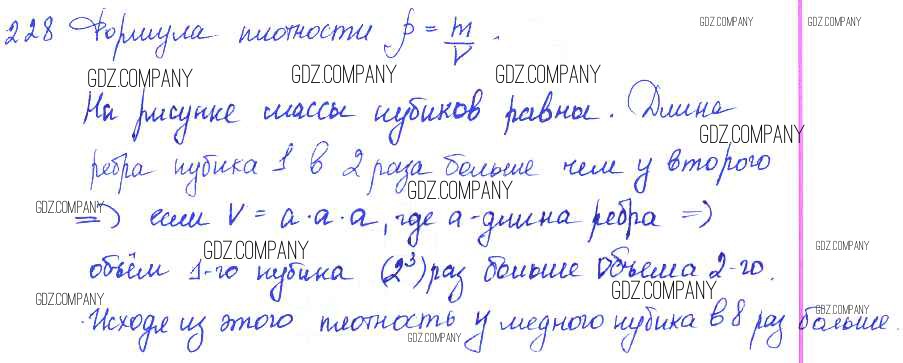 228 Формула плотности ρ = m/V. GDZ.COMPANY GDZ.COMPANY
GDZ.COMPANY GDZ.COMPANY GDZ.COMPANY
На рисунке массы кубиков равны. Длина
GDZ.COMPANY
ребра кубика 1 в 2 раза больше чем у второго
GDZ.COMPANY GDZ.COMPANY
=> если V = a·a·a, где a-длина ребра =>
GDZ.COMPANY GDZ.COMPANY
объём 1-го кубика (2³) раз больше объема 2-го.
GDZ.COMPANY GDZ.COMPANY
Исходя из этого плотность у медного кубика в 8 раз больше.
GDZ.COMPANY GDZ.COMPANY